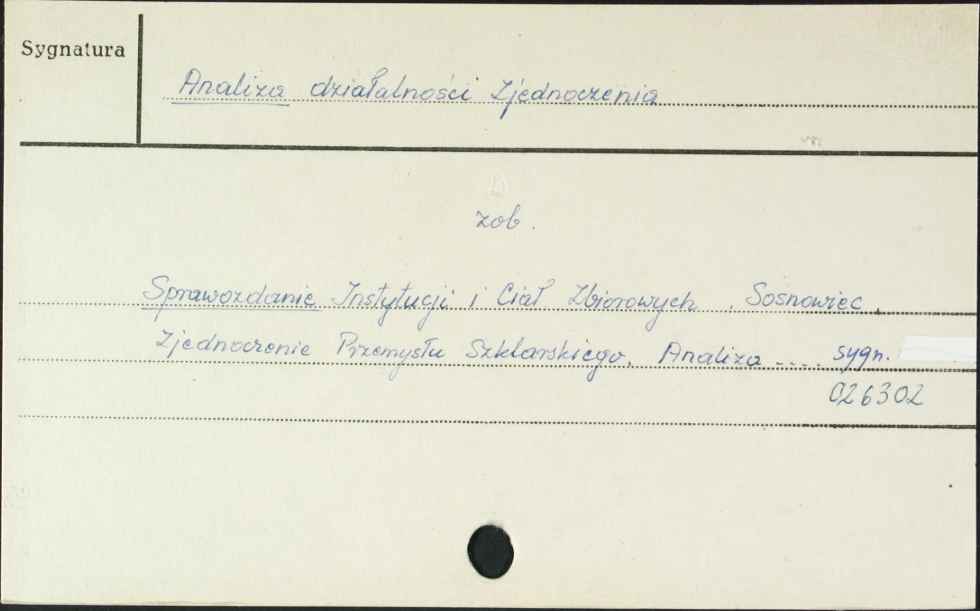 Sygnatura
Analiza działalności Zjednoczenia
zob.
Sprawozdanie Instytucji i Ciał Zbiorowych. Sosnowiec.
Zjednoczenie Przemysłu Szklarskiego. Analiza .... sygn.
026302